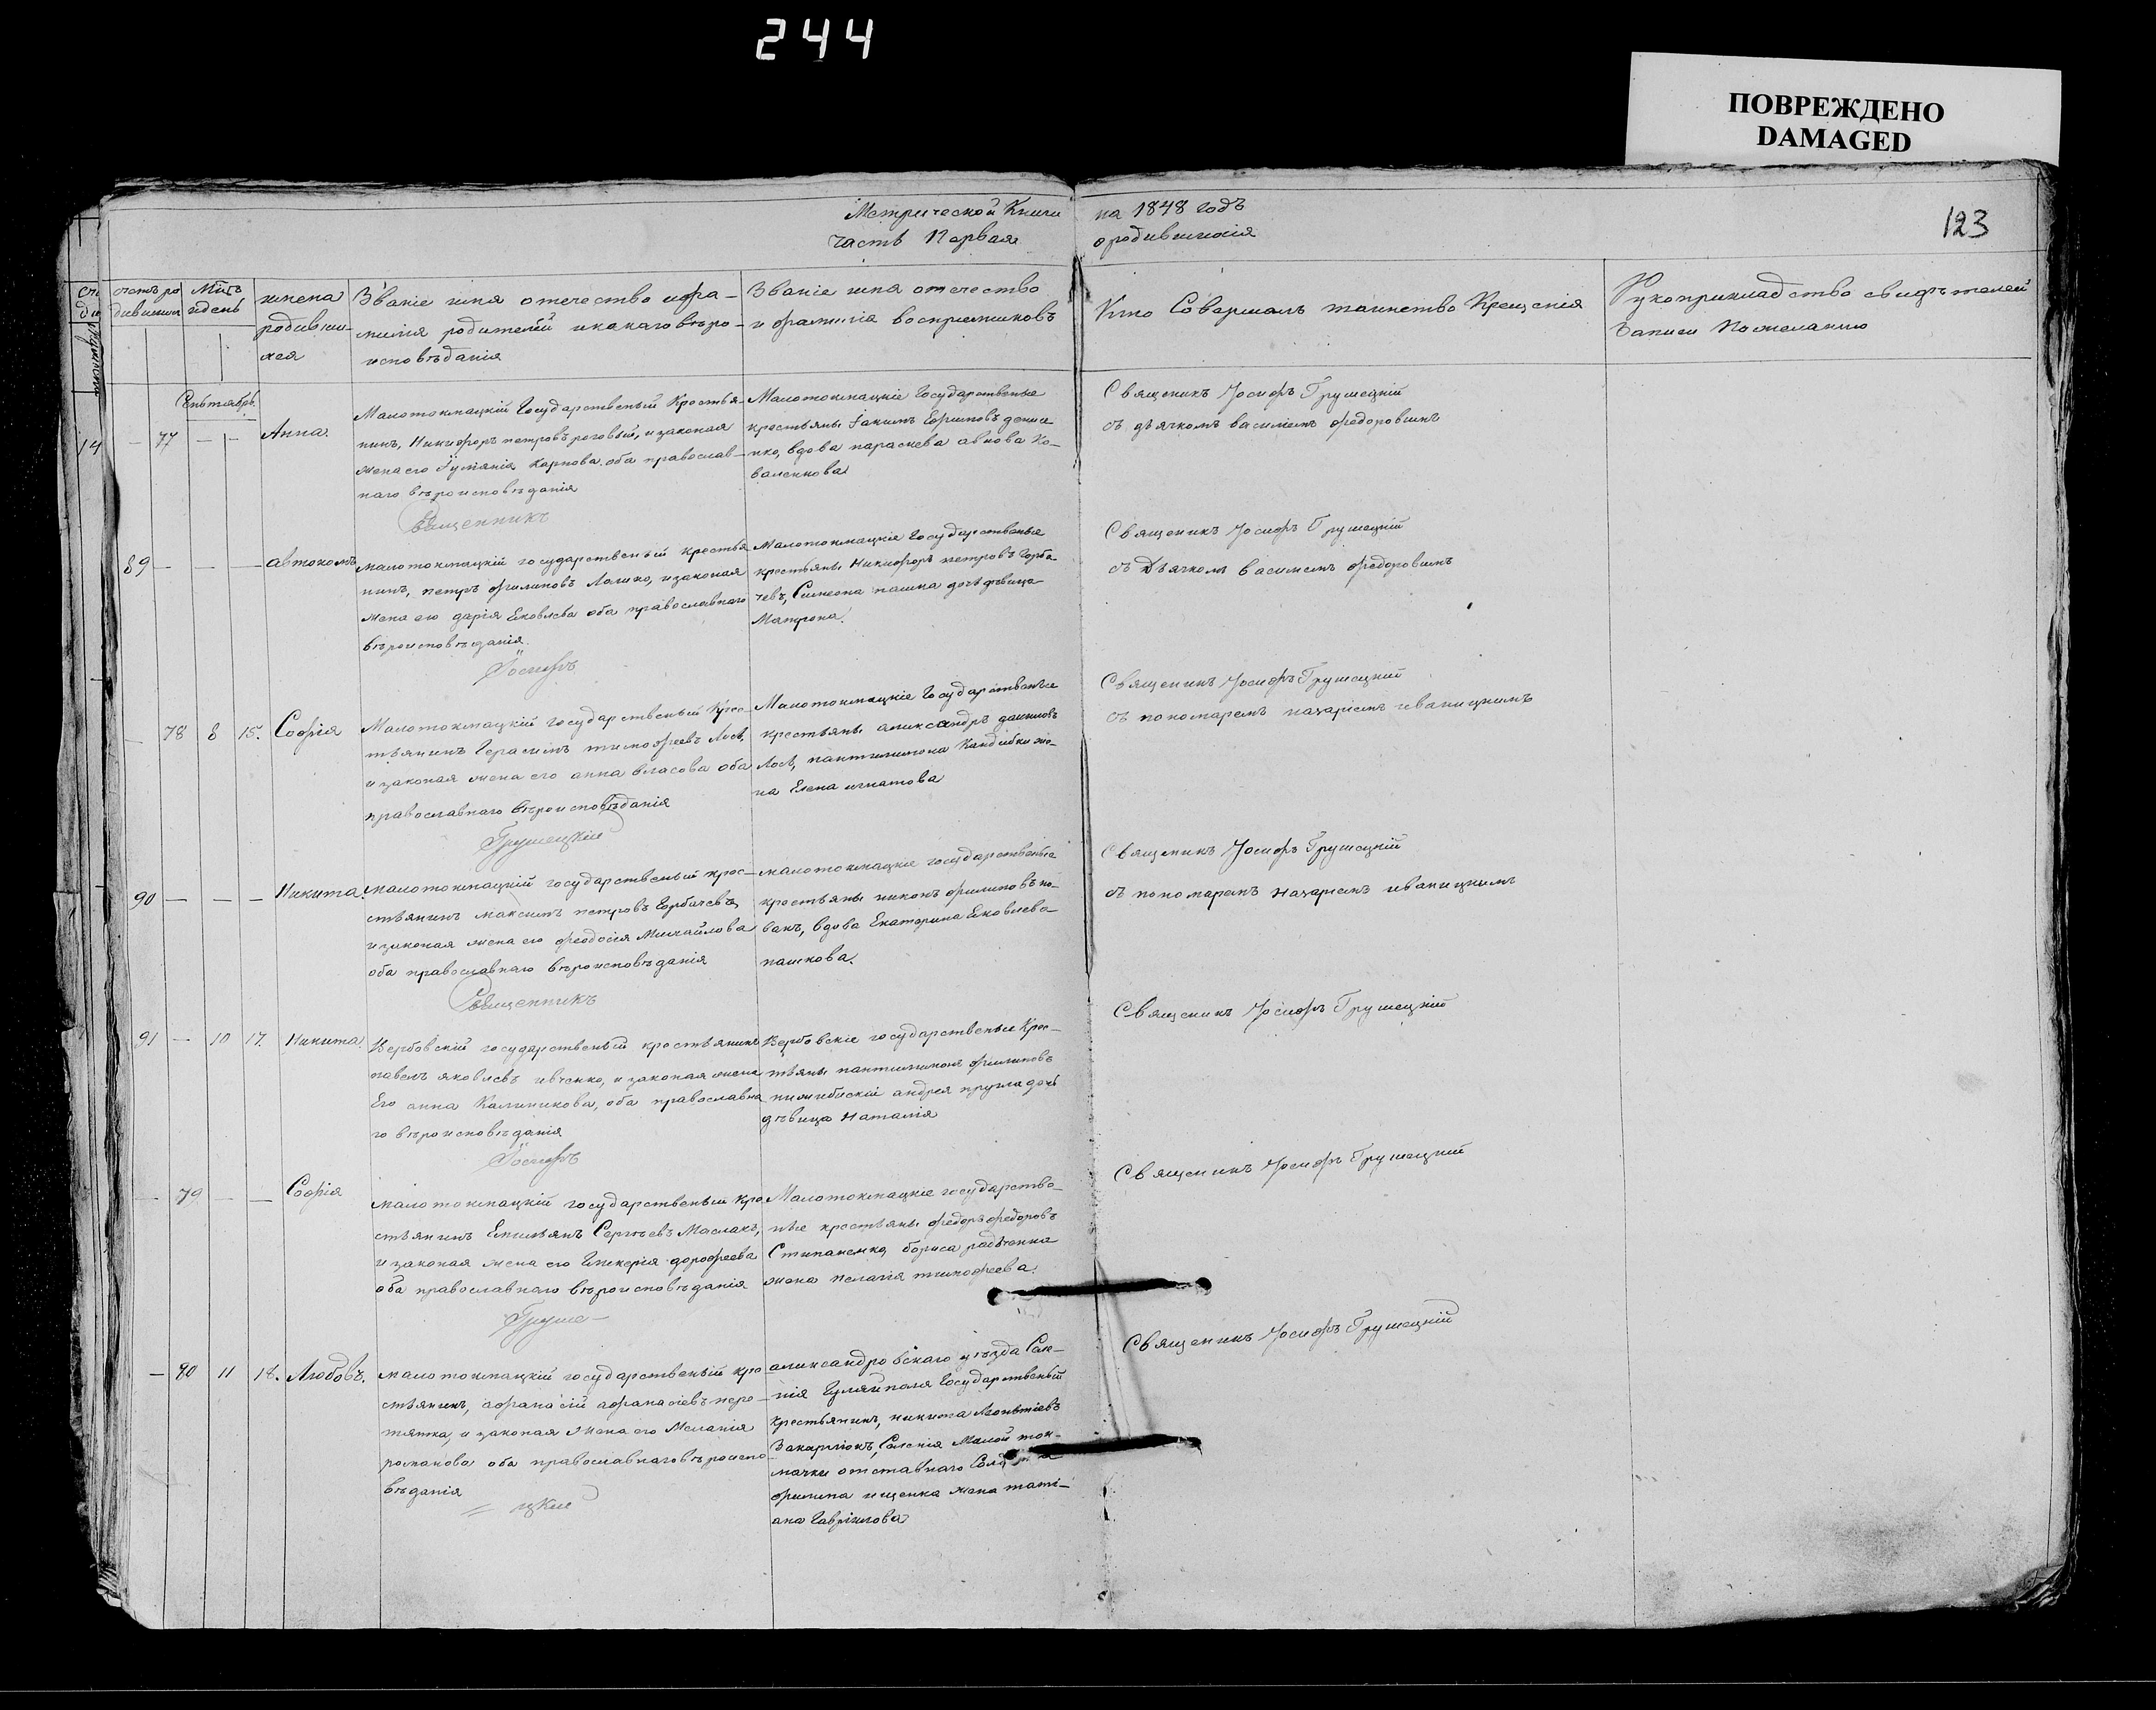 244
ПОВРЕЖДЕНО
DAMAGED
Метрической Книги на 1848 годъ
123
часть Первая о родившихся
счетъ ро
дившихся
Мѣсць
и день
имена
родивши
хся
Званіе имя отечество и фа-
милія родителей и какаго вѣро-
исповѣданія
Званіе имя отечество
и фамилія воспріемниковъ
Кто Совершалъ таинство Крещенія
Рукоприкладство свидѣтелей
записи По желанію
Сентябрь
14
— 77 — — Анна.
Малотокмацкій Государственый Крестья-
нинъ, Никифоръ петровъ роговый, и законая
жена его Карпова. оба православ-
наго вѣроисповѣданія
Малотокмацкіе Государственые
крестьяны Ефимовъ дени
нко, вдова параскева Ко-
валенкова
Священикъ Іосифъ Грушецкій
съ дьячкомъ василіемъ федоровимъ
Священникъ
89 — — — автономъ
Малотокмацкій государственый крестья
нинъ, петръ филиповъ Лалико, и законая
жена его дарія Яковлева оба православнаго
вѣроисповѣданія.
Малотокмацкіе Государственые
крестьяны Никифоръ петровъ Горба
чевъ, Симеона пашка дочь дѣвица
Матрона.
Священикъ Іосифъ Грушецкій
съ Дьячкомъ василіемъ федоровимъ
Іосифъ
— 78 8 15. Софія
Малотокмацкій государственый Крес-
тьянинъ Герасимъ тимофеевъ Лось,
и законая жена его анна власова оба
православнаго вѣроисповѣданія
Малотокмацкіе Государственые
крестьяны александръ даниловъ
Лось, пантилимона Кандибки же-
на Елена игнатова
Священикъ Іосифъ Грушецкій
съ пономаремъ назаріемъ иваницкимъ
Грушецкій
90 — — — Никита.
Малотокмацкій государственый крес-
стьянинъ максимъ петровъ Горбачевъ
и законая жена его феодосія Михайлова
оба православнаго вѣроисповѣданія
малотокмацкіе государственые
крестьяны никонъ филиповъ но-
вакъ, вдова Екатерина Яковлева
пашкова.
Священикъ Іосифъ Грушецкій
съ пономаремъ Назаріемъ иваницкимъ
Священникъ
91 — 10 17. Никита.
Вербовскій государственый крестьянинъ
павелъ яковлевъ ивченко, и законая жена
Его анна Калиникова, оба православна
го вѣроисповѣданія
Вербовскіе государственые Крес-
тьяны пантилимонъ филиповъ
андрея дочь
дѣвица Наталія
Священикъ Іосифъ Грушецкій
Іосифъ
— 79 — — Софія
малотокмацкій государственый кре
стьянинъ Емильянъ Сергѣевъ Маслакъ,
и законая жена его Гликерія дорофеева
оба православнаго вѣроисповѣданія
Малотокмацкіе государстве-
ные крестьяны федоръ федоровъ
Стипаненко, бориса радченка
жена пелагія тимофеева.
Священикъ Іосифъ Грушецкій
Груше-
— 80 11 18. Любовь.
малотокмацкій государственый кре
стьянинъ, афанасій афанасіевъ пере-
тятка, и законая жена его Меланія
романова оба православнаго вѣроиспо
вѣданія
александровскаго уѣзда Сел-
нія Гуляйполя Государственый
крестьянинъ, никита Леонтіевъ
Закарлюкъ, Селенія Малой ток-
мачки отставнаго
филипа ищенка жена таті-
ана Гавріилова
Священикъ Іосифъ Грушецкій
= цкій